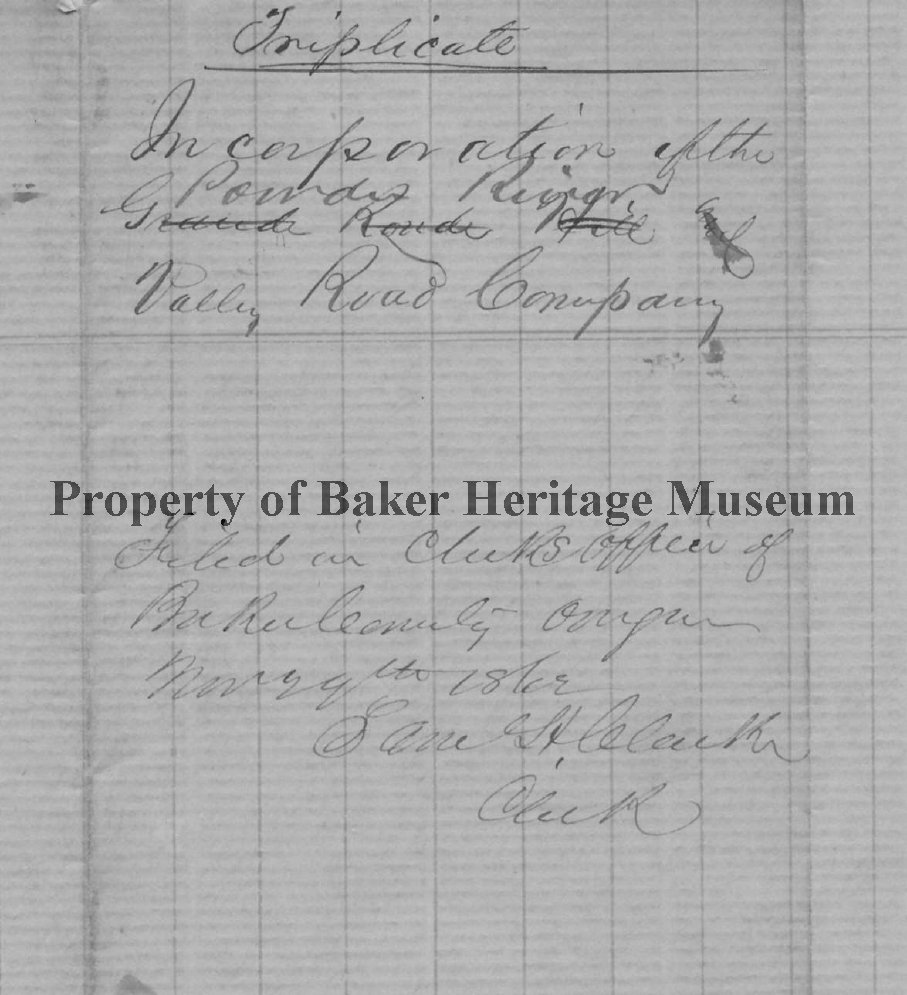 Triplicate
Incorporation of the
Powder River
Grande Ronde Hill &
Valley Road Company
Property of Baker Heritage Museum
Filed in Clerks Office of
Baker County Oregon
Nov 29th 1862
Saml H. Clarke
Clerk